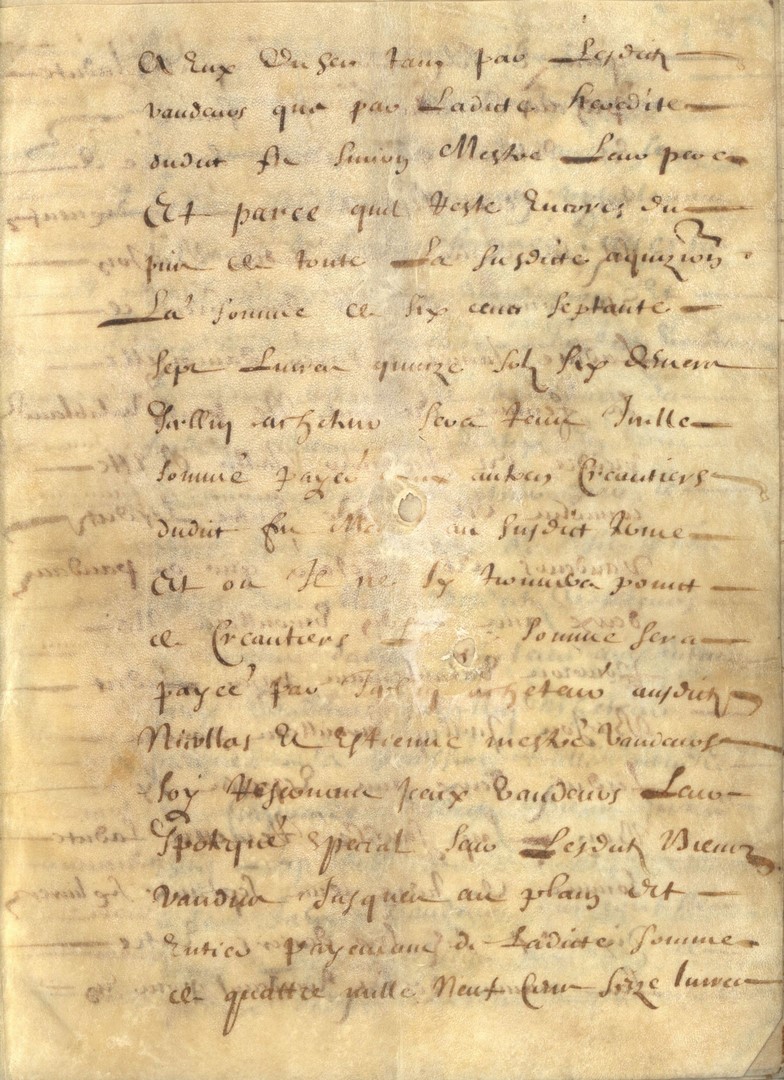 A Eux Du sen tant par Lesdictz
vandeurs que par Ladicte heredite
dudict fu Simon Mestre Leur pere
Et parce quil Reste Encores du
prix de toute La susdicte aquizion
La somme de six cens septante
sept Livres quinze solz six deniers
acheteur sera tenu Icelle
somme payer aux autres Creantiers
dudict fu au susdict Nome
Et ou Il ne sy trouvera poinct
de Creantiers somme sera
payee par acheteur ausdictz
Nicollas Et Estienne mestre vandeurs
soy Iceux Vandeurs Leur
Ipoteque special seur Lesdictz Biens
vandus Jusques au plain Et
Entier payement de Ladicte somme
de quattre mille Neuf Cens seize livres